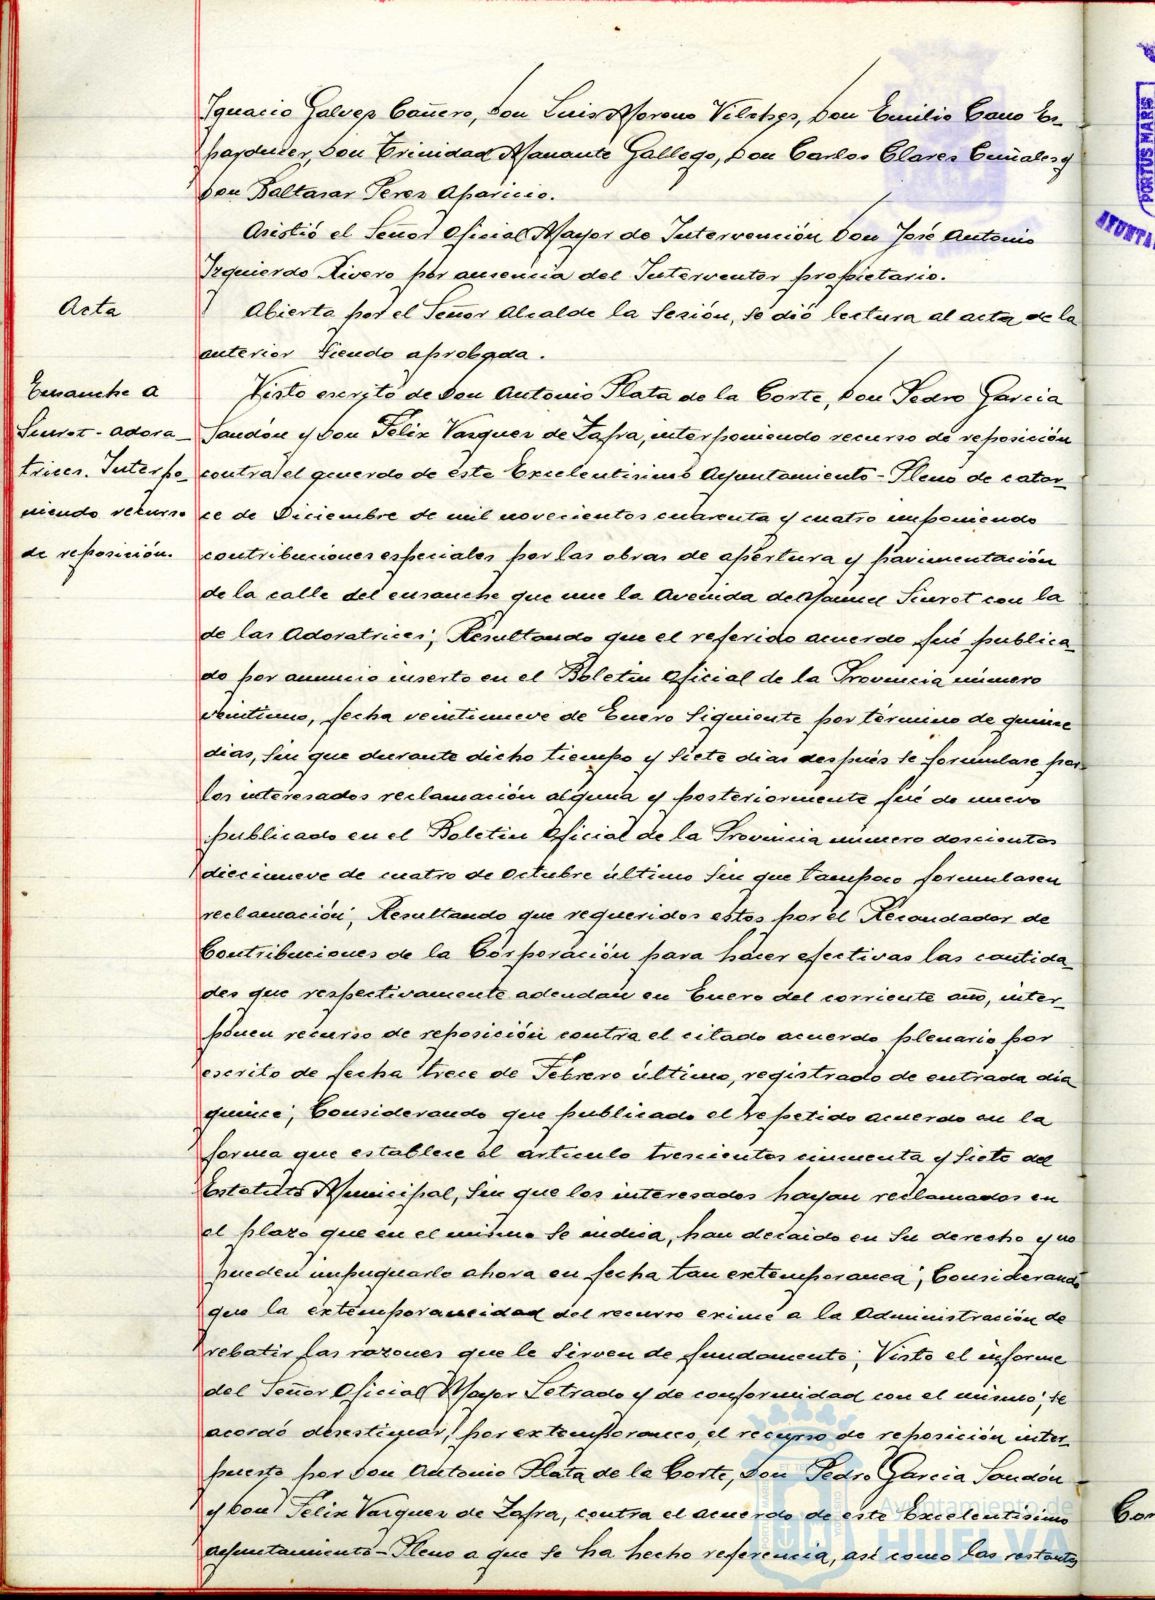 Ignacio Galvez Cañero, Don Luis Moreno Vilchez, Don Emilio Cano Es-
parducer, Don Trinidad Manante Gallego, Don Carlos Clares Cuñales y
Don Baltasar Perez Aparicio.
Asistió el Señor Oficial Mayor de Intervención Don José Antonio
Izquierdo Rivero por ausencia del Interventor propietario.
Acta
Abierta por el Señor Alcalde la Sesión, se dió lectura al acta de la
anterior siendo aprobada.
Ensanche a
Siurot-Adora-
trices. Interpo-
niendo recurso
de reposición.
Visto escrito de Don Antonio Plata de la Corte, Don Pedro Garcia
Sandón y Don Félix Vazquez de Zafra, interponiendo recurso de reposición
contra el acuerdo de este Excelentisimo Ayuntamiento-Pleno de cator-
ce de Diciembre de mil novecientos cuarenta y cuatro imponiendo
contribuciones especiales por las obras de apertura y pavimentación
de la calle del ensanche que une la Avenida de Manuel Siurot con la
de las Adoratrices; Resultando que el referido acuerdo fué publica-
do por anuncio inserto en el Boletin Oficial de la Provincia número
veintiuno, fecha veintinueve de Enero siguiente por término de quince
dias, sin que durante dicho tiempo y siete dias después se formulase por
los interesados reclamación alguna y posteriormente fué de nuevo
publicado en el Boletin Oficial de la Provincia número doscientos
diecinueve de cuatro de Octubre último sin que tampoco formulasen
reclamación; Resultando que requeridos estos por el Recaudador de
Contribuciones de la Corporación para hacer efectivas las cantida-
des que respectivamente adeudan en Enero del corriente año, inter-
ponen recurso de reposición contra el citado acuerdo plenario por
escrito de fecha trece de Febrero último, registrado de entrada dia
quince; Considerando que publicado el repetido acuerdo en la
forma que establece el articulo trescientos cincuenta y siete del
Estatuto Municipal, sin que los interesados hayan reclamados en
el plazo que en el mismo se indica, han decaido en su derecho y no
pueden impugnarlo ahora en fecha tan extemporanea; Considerando
que la extemporaneidad del recurso exime a la Administración de
rebatir las razones que le sirven de fundamento; Visto el informe
del Señor Oficial Mayor Letrado y de conformidad con el mismo; se
acordó desestimar, por extemporaneo, el recurso de reposición inter-
puesto por Don Antonio Plata de la Corte, Don Pedro Garcia Sandón
y Don Felix Vazquez de Zafra, contra el acuerdo de este Excelentisimo
Ayuntamiento-Pleno a que se ha hecho referencia, asi como las restantes
PORTUS MARIS
Ayuntamiento de
HUELVA